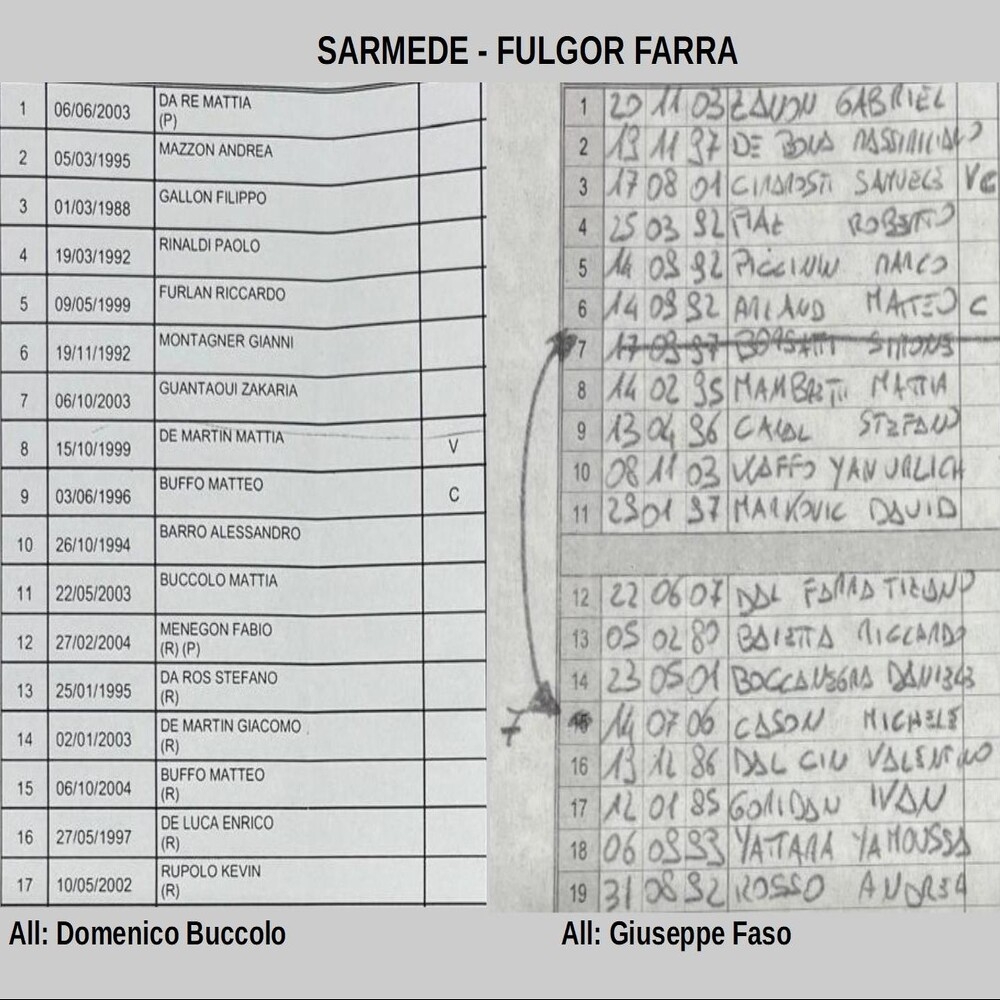 SARMEDE - FULGOR FARRA
1 06/06/2003 DA RE MATTIA
(P)
2 05/03/1995 MAZZON ANDREA
3 01/03/1988 GALLON FILIPPO
4 19/03/1992 RINALDI PAOLO
5 09/05/1999 FURLAN RICCARDO
6 19/11/1992 MONTAGNER GIANNI
7 06/10/2003 GUANTAOUI ZAKARIA
8 15/10/1999 DE MARTIN MATTIA V
9 03/06/1996 BUFFO MATTEO C
10 26/10/1994 BARRO ALESSANDRO
11 22/05/2003 BUCCOLO MATTIA
12 27/02/2004 MENEGON FABIO
(R) (P)
13 25/01/1995 DA ROS STEFANO
(R)
14 02/01/2003 DE MARTIN GIACOMO
(R)
15 06/10/2004 BUFFO MATTEO
(R)
16 27/05/1997 DE LUCA ENRICO
(R)
17 10/05/2002 RUPOLO KEVIN
(R)
All: Domenico Buccolo
1 20 11 03 ZANON GABRIEL
2 13 11 97 DE BONA MASSIMILIANO
3 17 08 01 SAMUELE VC
4 25 03 92 ROBERTO
5 14 09 92 PICCININ MARCO
6 14 09 92 MATTEO C
7 17 09 97 SIMONE
8 14 02 95 MATTIA
9 13 04 96 STEFANO
10 08 11 03 YAN URLICH
11 29 01 97 MARKOVIC DAVID
12 22 06 07 DAL FARRA TIZIANO
13 05 02 80 RICCARDO
14 23 05 01 BOCCANEGRA DANIELE
7 15 14 07 06 CASON MICHELE
16 13 12 86 DAL CIN VALENTINO
17 12 01 85 IVAN
18 06 09 93 YATTARA YAMOUSSA
19 31 08 92 ROSSO ANDREA
All: Giuseppe Faso